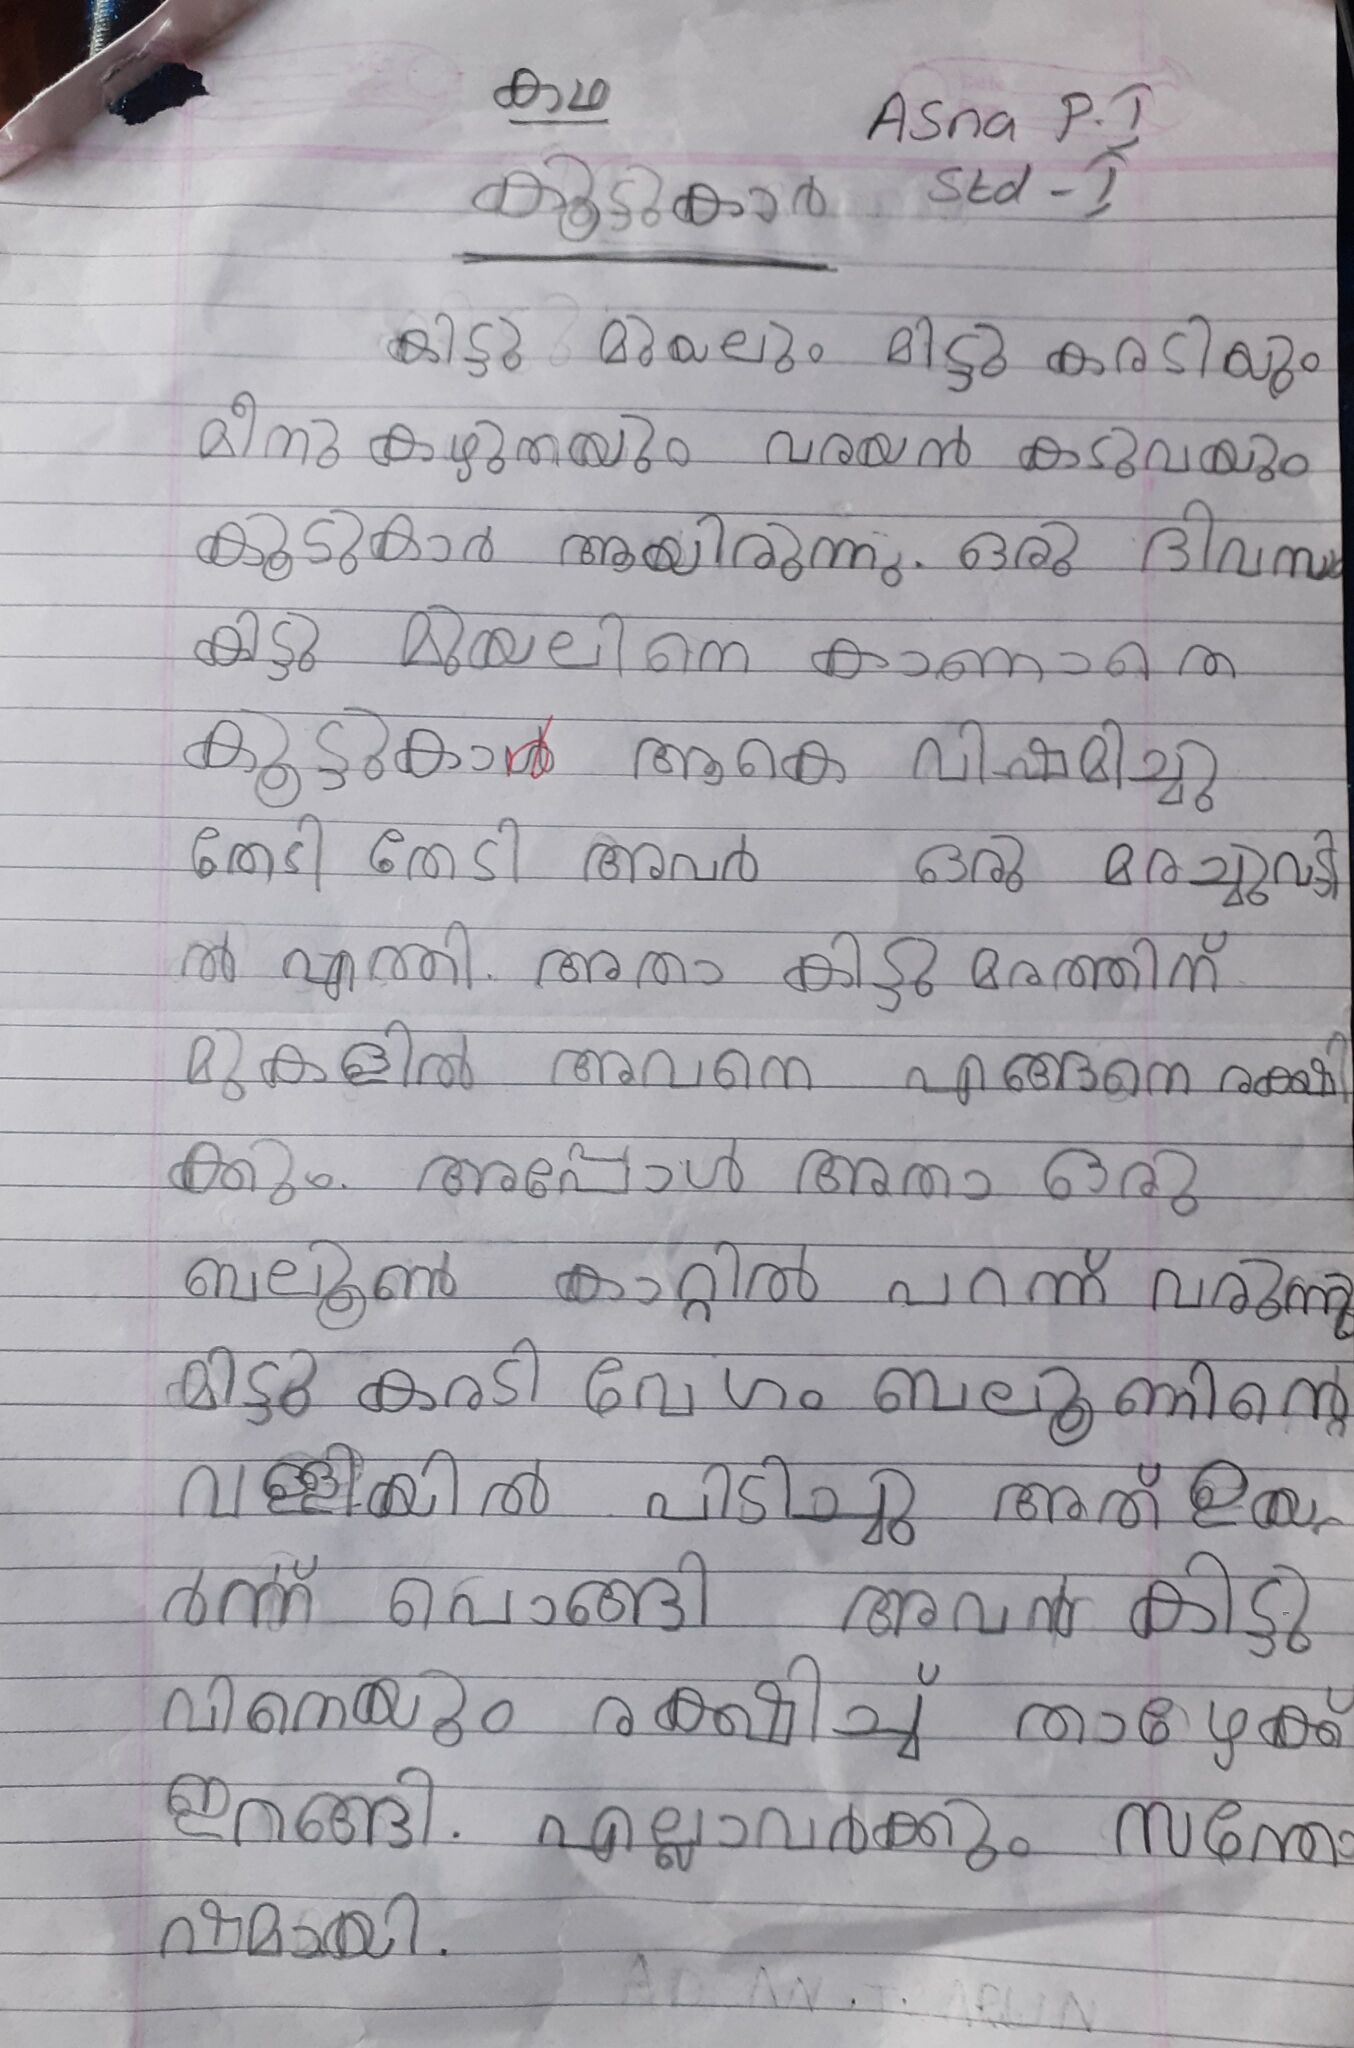 കഥ
Asna P.I
കൂട്ടുകാർ
Std - I
കിട്ടു മുയലും മിട്ടു കരടിയും
മീനു കഴുതയും വരയൻ കടുവയും
കൂടുകാർ ആയിരുന്നു. ഒരു ദിവസം
കിട്ടു മുയലിനെ കാണാതെ
കൂട്ടുകാർ ആകെ വിഷമിച്ചു
തേടി തേടി അവർ ഒരു മരച്ചുവട്ടി
ൽ എത്തി. അതാ കിട്ടു മരത്തിന്
മുകളിൽ അവനെ എങ്ങനെ രക്ഷി
ക്കും. അപ്പോൾ അതാ ഒരു
ബലൂൺ കാറ്റിൽ പറന്ന് വരുന്നു
മിട്ടു കരടി വേഗം ബലൂണിന്റെ
വള്ളിയിൽ പിടിച്ചു അത് ഉയ
ർന്ന് പൊങ്ങി അവൻ കിട്ടു
വിനെയും രക്ഷിച്ച് താഴേക്ക്
ഇറങ്ങി. എല്ലാവർക്കും സന്തോ
ഷമായി.